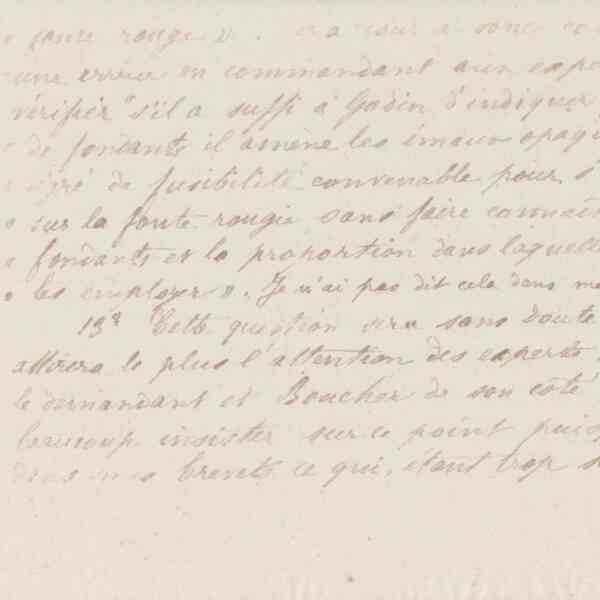 fonte rouge ». a cour a
une erreur en commandant aux expe
vérifier "s'il a suffi à Godin d'indiquer
de fondants il amène les émaux opaq
degré de fusibilité convenable pour s'
sur la fonte rougie sans faire connaî
fondants et la proportion dans laquelle
les employer ». Je n'ai pas dit cela dans me
13° Cette question sera sans doute
attirera le plus l'attention des experts
le demandant et Boucher de son côté
beaucoup insister sur ce point puis
dans mes brevets ce qui, étant trop s